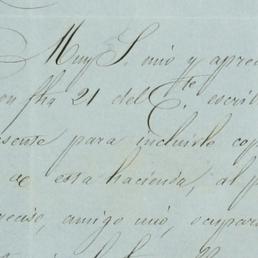 Muy S. mio y aprec
on fha 21 del Cte escrib
sente para incluirle cop
de esta hacienda, al p
reciso, amigo mio, ocupar